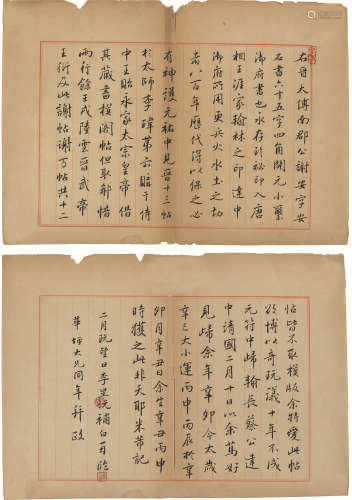 右晉太傅南郡公謝安字安
石書六十五字四角開元小璽
御府書也永存秘印入唐
相王涯家翰林之印建中
御府所用更兵火水土之劫
者八百年歷代得以保之必
有神護元祐中見晉十三帖
於太師李瑋第云購于侍
中王貽永家太宗皇帝借
其藏書模閣帖但取郗愔
兩行餘王戎陸雲晉武帝
王衍及此謝帖謝万帖共十二
帖皆不取模版余特愛此帖
欲博以奇玩議十年不成
元符中歸翰長蔡公建
中靖國二月十日以余篤好
見歸余年辛卯今太歲
辛巳大小運丙申丙辰於辛
卯月辛丑日余生辛丑丙申
時獲之此非天耶米芾記
二月既望日李
大兄同年 政